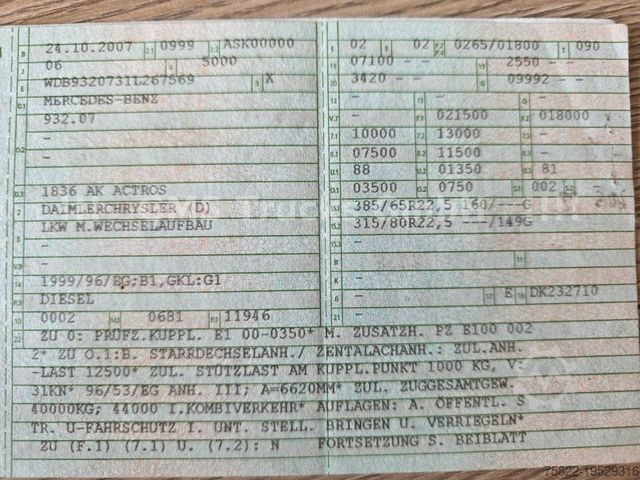 B 24.10.2007 2.1 0999 2.2 ASK00000
J 06 4 5000
E WDB9320731L267569 3 X
D.1 MERCEDES-BENZ
932.07
D.2 -
-
D.3 1836 AK ACTROS
2 DAIMLERCHRYSLER (D)
5 LKW M.WECHSELAUFBAU
-
V.9 -
14 1999/96/EG;B1,GKL:G1
P.3 DIESEL
10 0002 14.1 0681 P.1 11946
L 02 9 02 P.2/P.4 0265/01800 T 090
18 07100 - - 19 2550 - -
20 3420 - - G 09992 - -
12 - 13 - Q -
V.7 - F.1 021500 F.2 018000
7.1 10000 7.2 13000 7.3 -
8.1 07500 8.2 11500 8.3 -
U.1 88 U.2 01350 U.3 81
O.1 03500 O.2 0750 S.1 002 S.2 -
15.1 385/65R22,5 160/---G
15.2 315/80R22,5 ---/149G
15.3 -
R - 11 -
K -
6 - 17 E 16 DK232710
21 -
22 ZU 0: PRÜFZ.KUPPL. E1 00-0350* M. ZUSATZH. PZ E100 002
2* ZU O.1:B. STARRDECHSELANH./ ZENTALACHANH.: ZUL.ANH.
-LAST 12500* ZUL. STÜTZLAST AM KUPPL.PUNKT 1000 KG, V:
31KN* 96/53/EG ANH. III; A=6620MM* ZUL. ZUGGESAMTGEW.
40000KG; 44000 I.KOMBIVERKEHR* AUFLAGEN: A. ÖFFENTL. S
TR. U-FAHRSCHUTZ I. UNT. STELL. BRINGEN U. VERRIEGELN*
ZU (F.1) (7.1) U. (7.2): N FORTSETZUNG S. BEIBLATT
75822-19529316